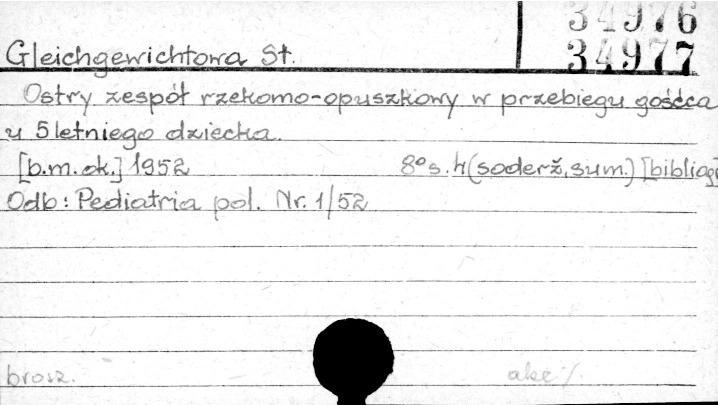 34976
Gleichgewichtowa St. 34977
Ostry zespół rzekomo-opuszkowy w przebiegu gośćca
u 5letniego dziecka.
[b.m.ok.] 1952 8° s. 4 (soderž, sum.) [bibliogr
Odb: Pediatria pol. Nr. 1/52
brosz. akc /.